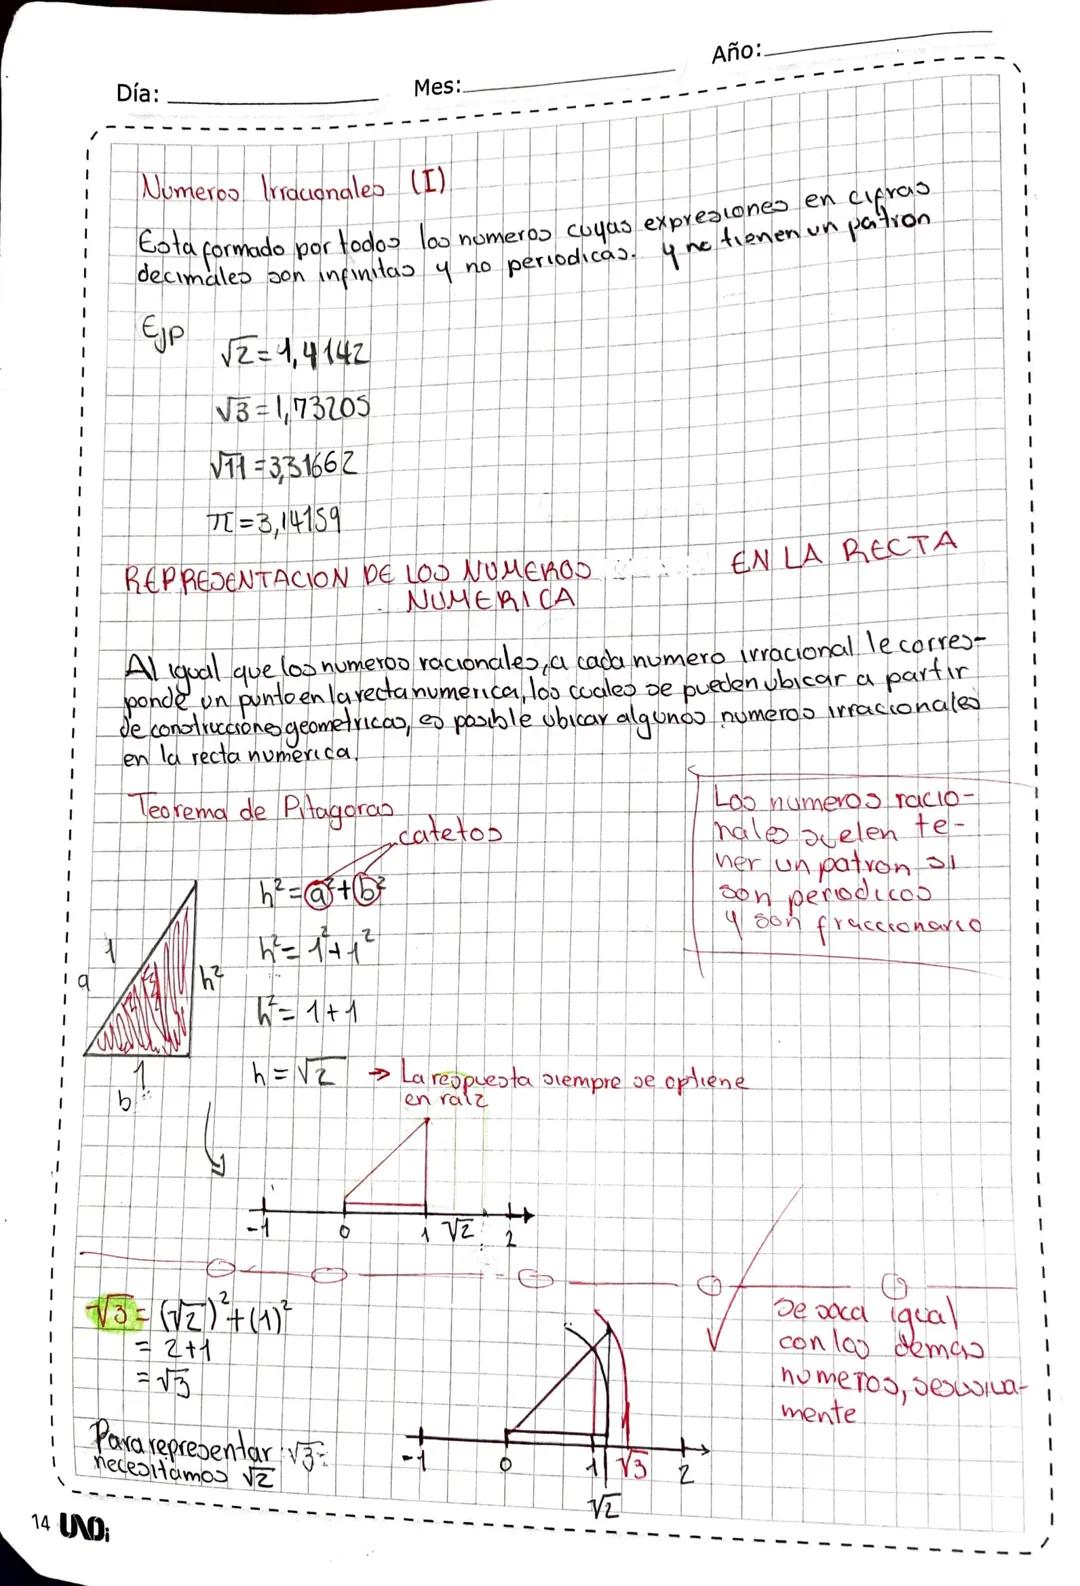 Día:
Mes:
Año:
Numeros Irracionales (I)
Esta formado por todos los numeros cuyas expresiones en cifras
decimales son infinitas y no periodicas. y no tienen un patron
Ejp
√2 = 1,4142
√3 = 1,73205
√11 = 3,31662
π = 3,14159
REPRESENTACION DE LOS NUMEROS EN LA RECTA
NUMERICA
Al igual que los numeros racionales, a cada numero irracional le corres-
ponde un punto en la recta numerica, los cuales se pueden ubicar a partir
de construcciones geometricas, es posible ubicar algunos numeros irracionales
en la recta numerica.
Teorema de Pitagoras
catetos
h² = a² + b²
h² = 1² + 1²
h² = 1 + 1
h = √2 → La respuesta siempre se optiene
en raiz
1
a
h²
1
b
Los numeros racio-
nales suelen te-
ner un patron si
son periodicos
y son fraccionario
-1 0 1 √2 2
√3 = (√2)² + (1)²
= 2+1
= √3
Para representar √3
necesitamos √2
-1 0 1 √3 2
√2
Se saca igual
con los demas
numeros,
mente
14 UNOi